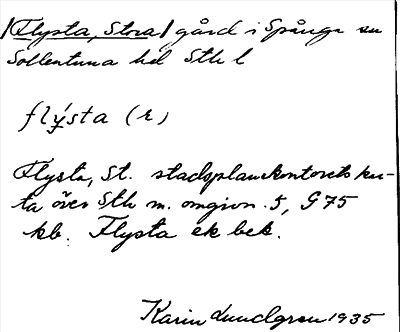 /Flysta, Stora/ gård i Spånga sn
Sollentuna hd Sth l
flýsta (r)
Flysta, St. stadsplanekontorets kar-
ta över Sth m. omgivn. 5, G 75
kb. Flysta ek bek.
Karin Lundgren 1935